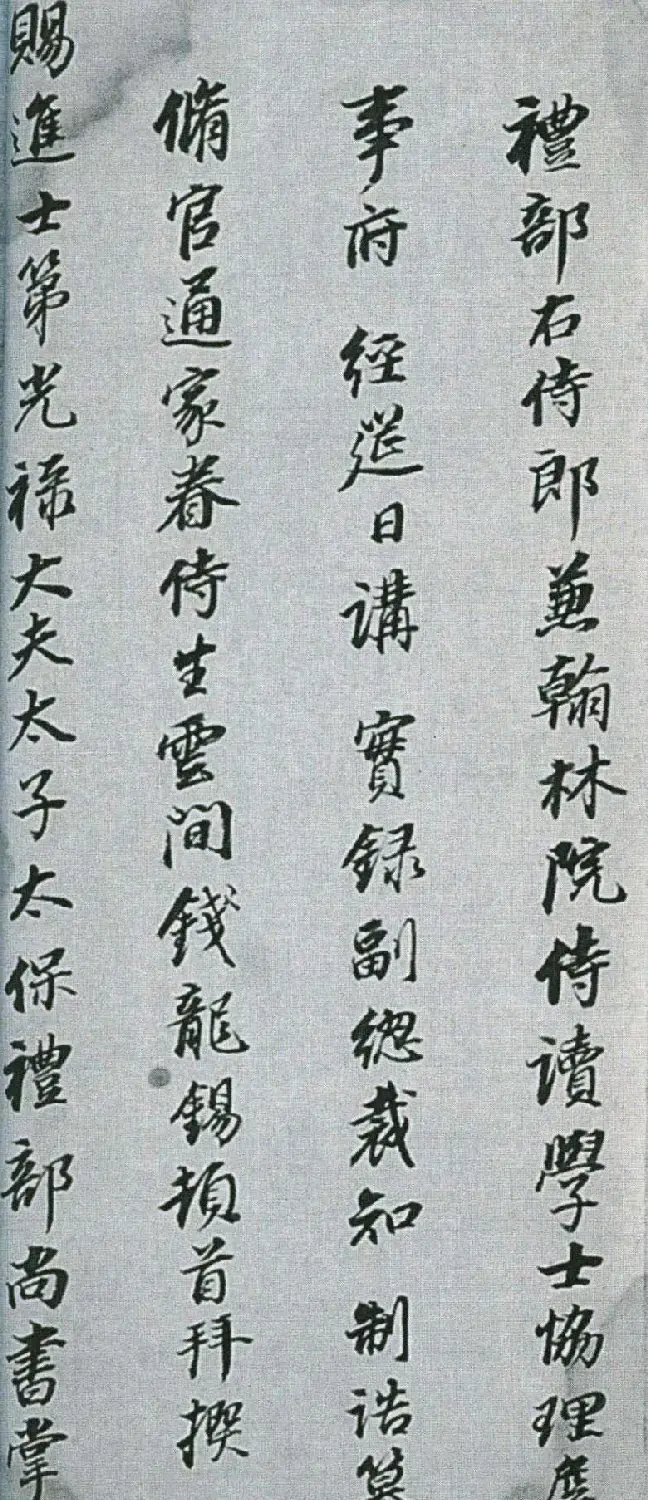 禮部右侍郎兼翰林院侍讀學士協理
事府 經筵日講 實錄副總裁知 制誥
脩官通家眷侍生雲間錢龍錫頓首拜撰
賜進士第光祿大夫太子太保禮部尚書掌